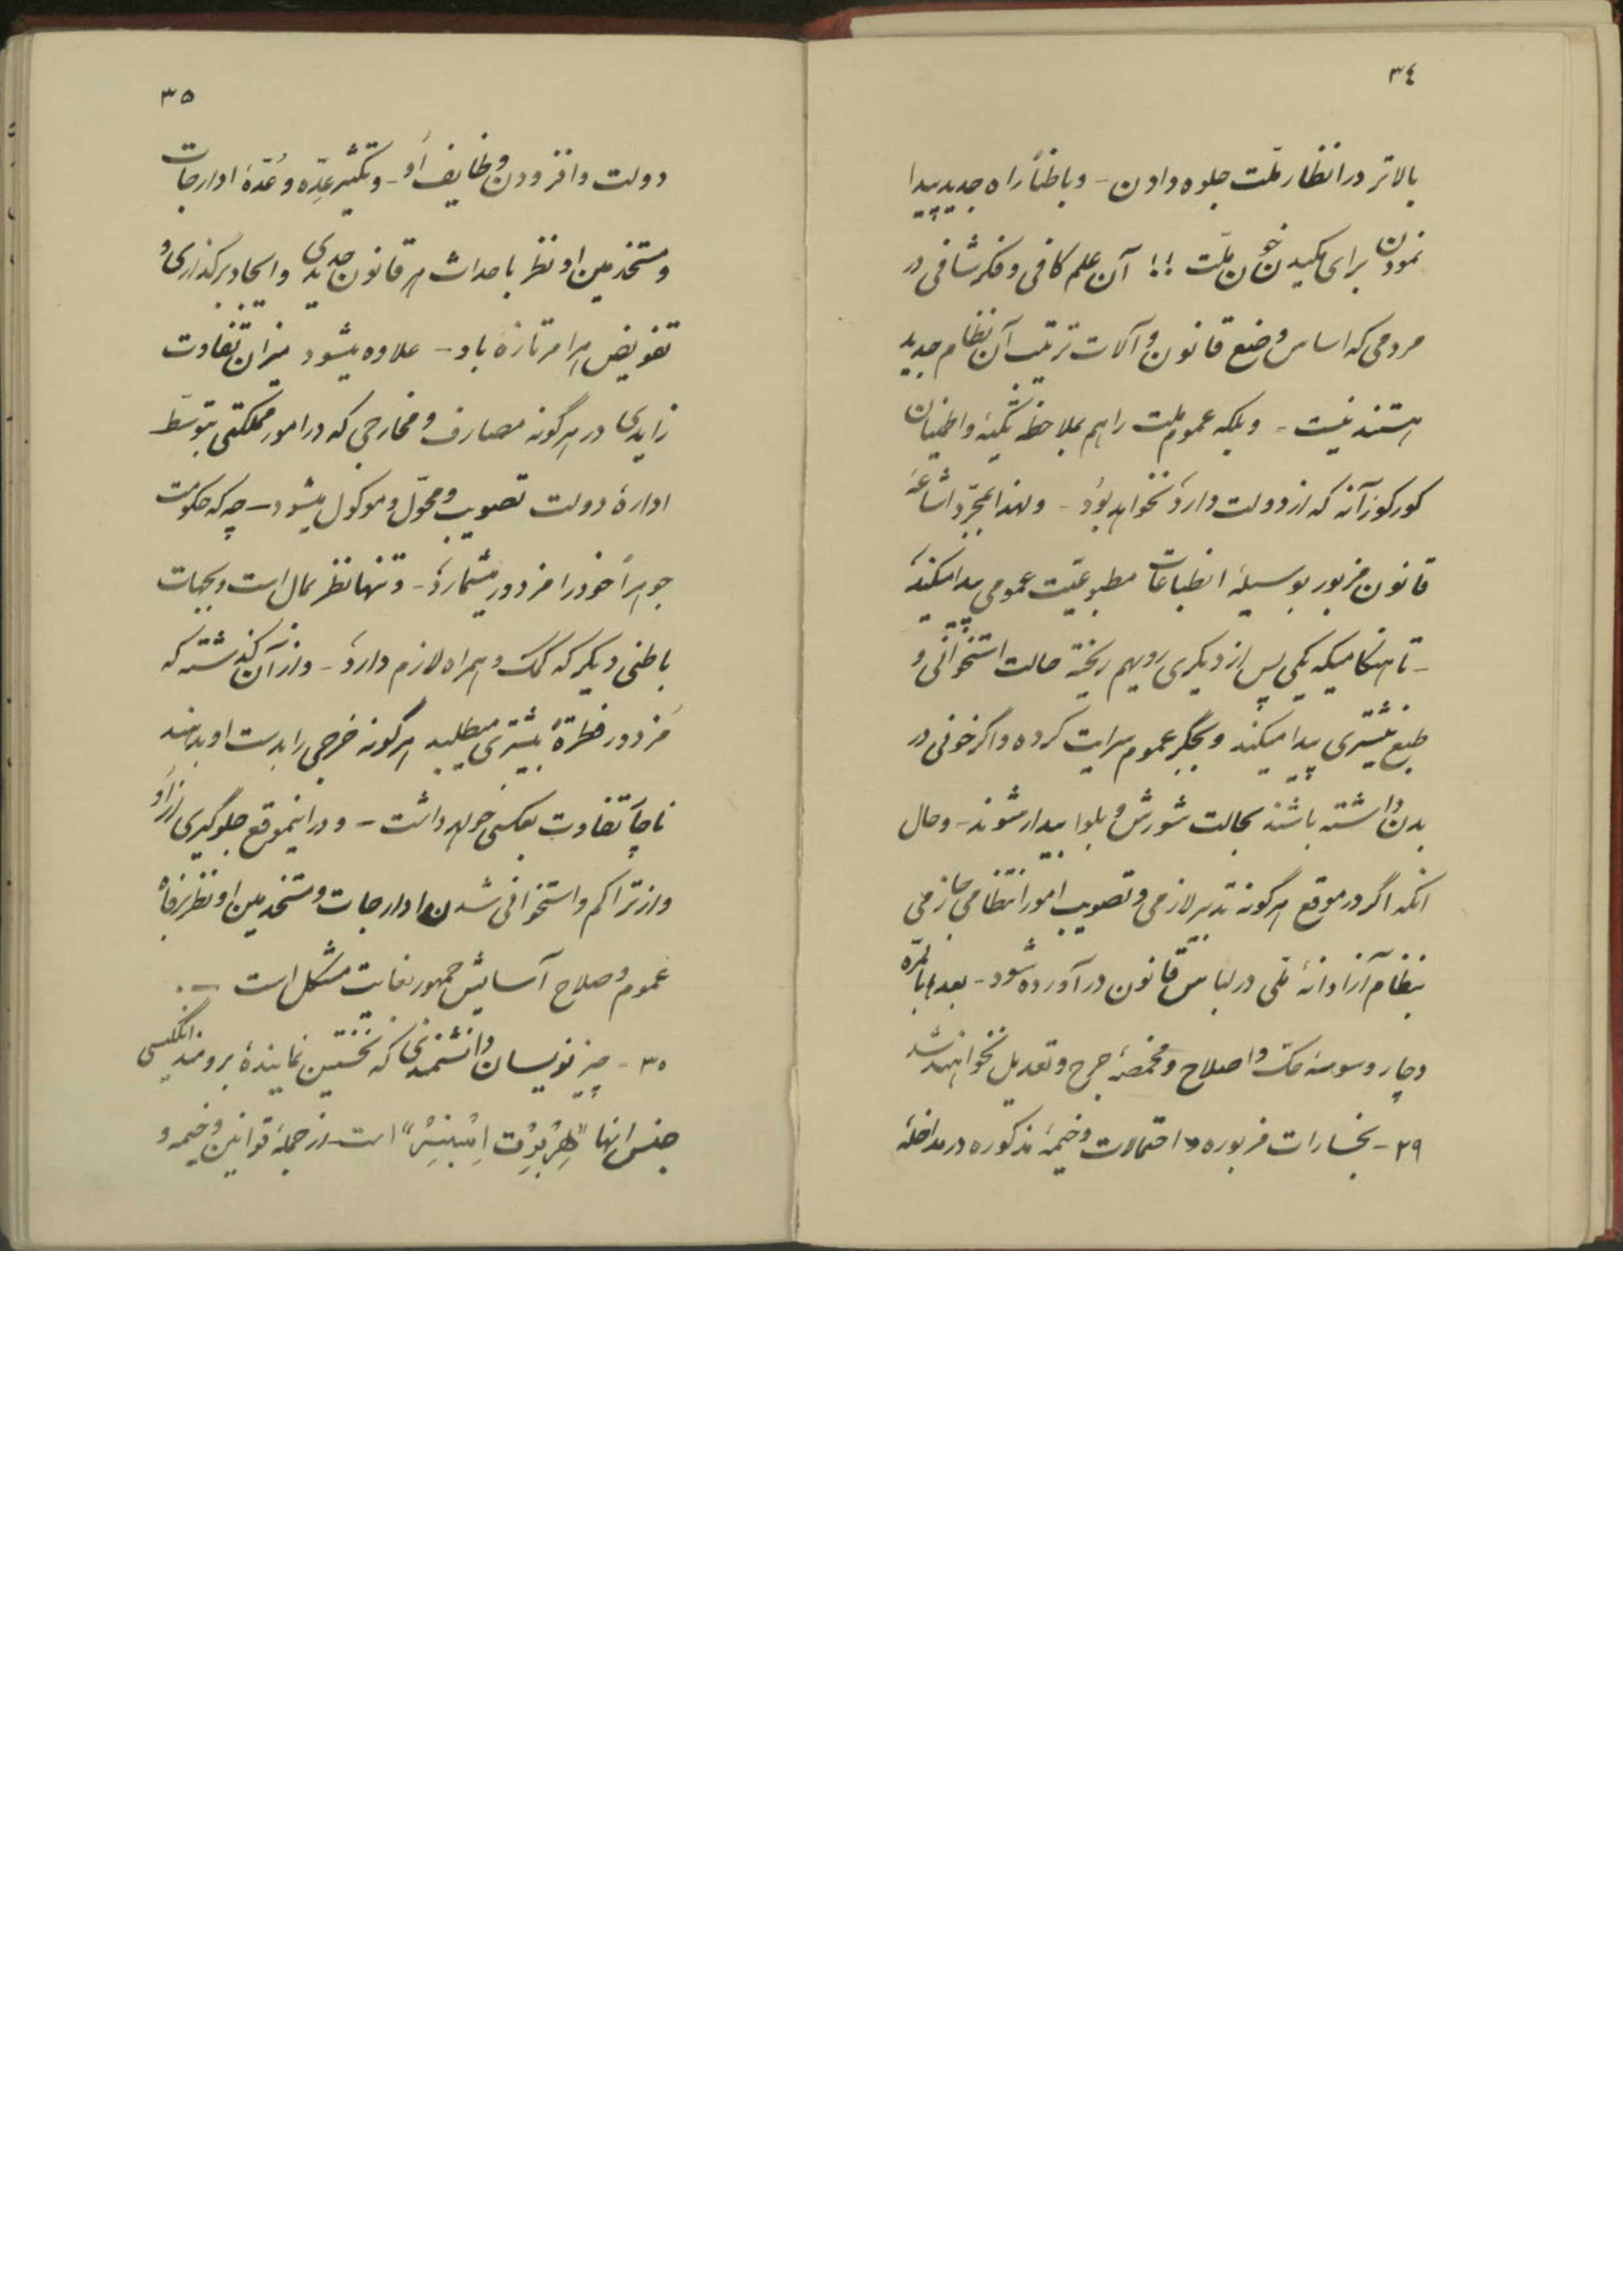 ٣٤
بالاتر در انظار ملّت جلوه دادن - و باطناً راه جدید پیدا
نمودن برای مکیدن خون ملّت !! آن علم کافی و فکر شافی در
مردمی که اساس وضع قانون و آلات ترتیب آن نظام جدید
هستند نیست - و بلکه عموم ملت را هم بملاحظه تکیه و اطمینان
کورکورانه که از دولت دارد نخواهد بود - و لهذا بمجرّد اشاعهٔ
قانون مزبور بوسیلهٔ انطباعات مطبوعیّت عمومی پیدا میکند
- تا هنگامیکه یکی پس از دیگری رویهم ریخته حالت استخوانی و
طبع بیشتری پیدا میکند و بجگر عموم سرایت کرده و اگر خونی در
بدن داشته باشند بحالت شورش و بلوا بیدار شوند - و حال
آنکه اگر در موقع هرگونه تدبیر لازمی و تصویب امور انتظامی جازمی
بنظام آزادانهٔ ملّی در لباس قانون در آورده شود - بعدها بالمرّه
دچار وسوسهٔ حکّ و اصلاح و مخمصهٔ جرح و تعدیل نخواهند شد
٢٩ - بخسارات مزبوره و احتمالات وخیمهٔ مذکوره در مداخلهٔ
٣٥
دولت و افزودن وظایف او - و تکثیر عِدّه و عُدّهٔ ادارجات
و مستخدمین او نظر باحداث هر قانون جدیدی و ایجاد برگذاری و
تفویض هر امر تازه باو - علاوه میشود میزان تفاوت
زایدی در هرگونه مصارف و مخارجی که در امور مملکتی بتوسّط
ادارهٔ دولت تصویب و محوّل و موکول میشود - چه که حکومت
جوهراً خود را مزدور میشمارد - و تنها نظر بمال است و بجهات
باطنی دیگر که کمک و همراه لازم دارد - و از آن گذشته که
مُزدور فطرةً بیشتری میطلبد هرگونه خرجی را بدست او بدهند
ناچار تفاوت بعکسی خواهد داشت - و در اینموقع جلوگیری از او
و از تراکم و استخوانی شدن ادارجات و مستخدمین او نظر برفاه
عموم و صلاح آسایش جمهور بغایت مشکل است -.
٣٠ - چیز نویسان دانشمندی که نخستین نمایندهٔ برومند انگلیسی
جنس آنها "هِرْبِرْت اِسْپِنْسِرْ" است از جملهٔ قوانین وخیمه و